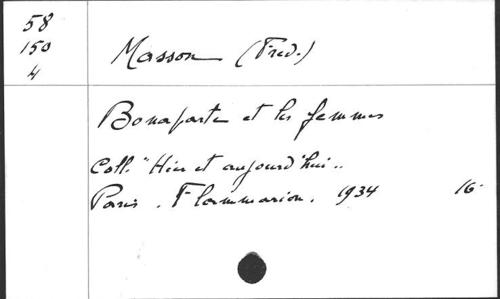 58
150
4
Masson (Fred.)
Bonaparte et les femmes
Coll. "Hier et aujourd'hui"
Paris. Flammarion. 1934 16°